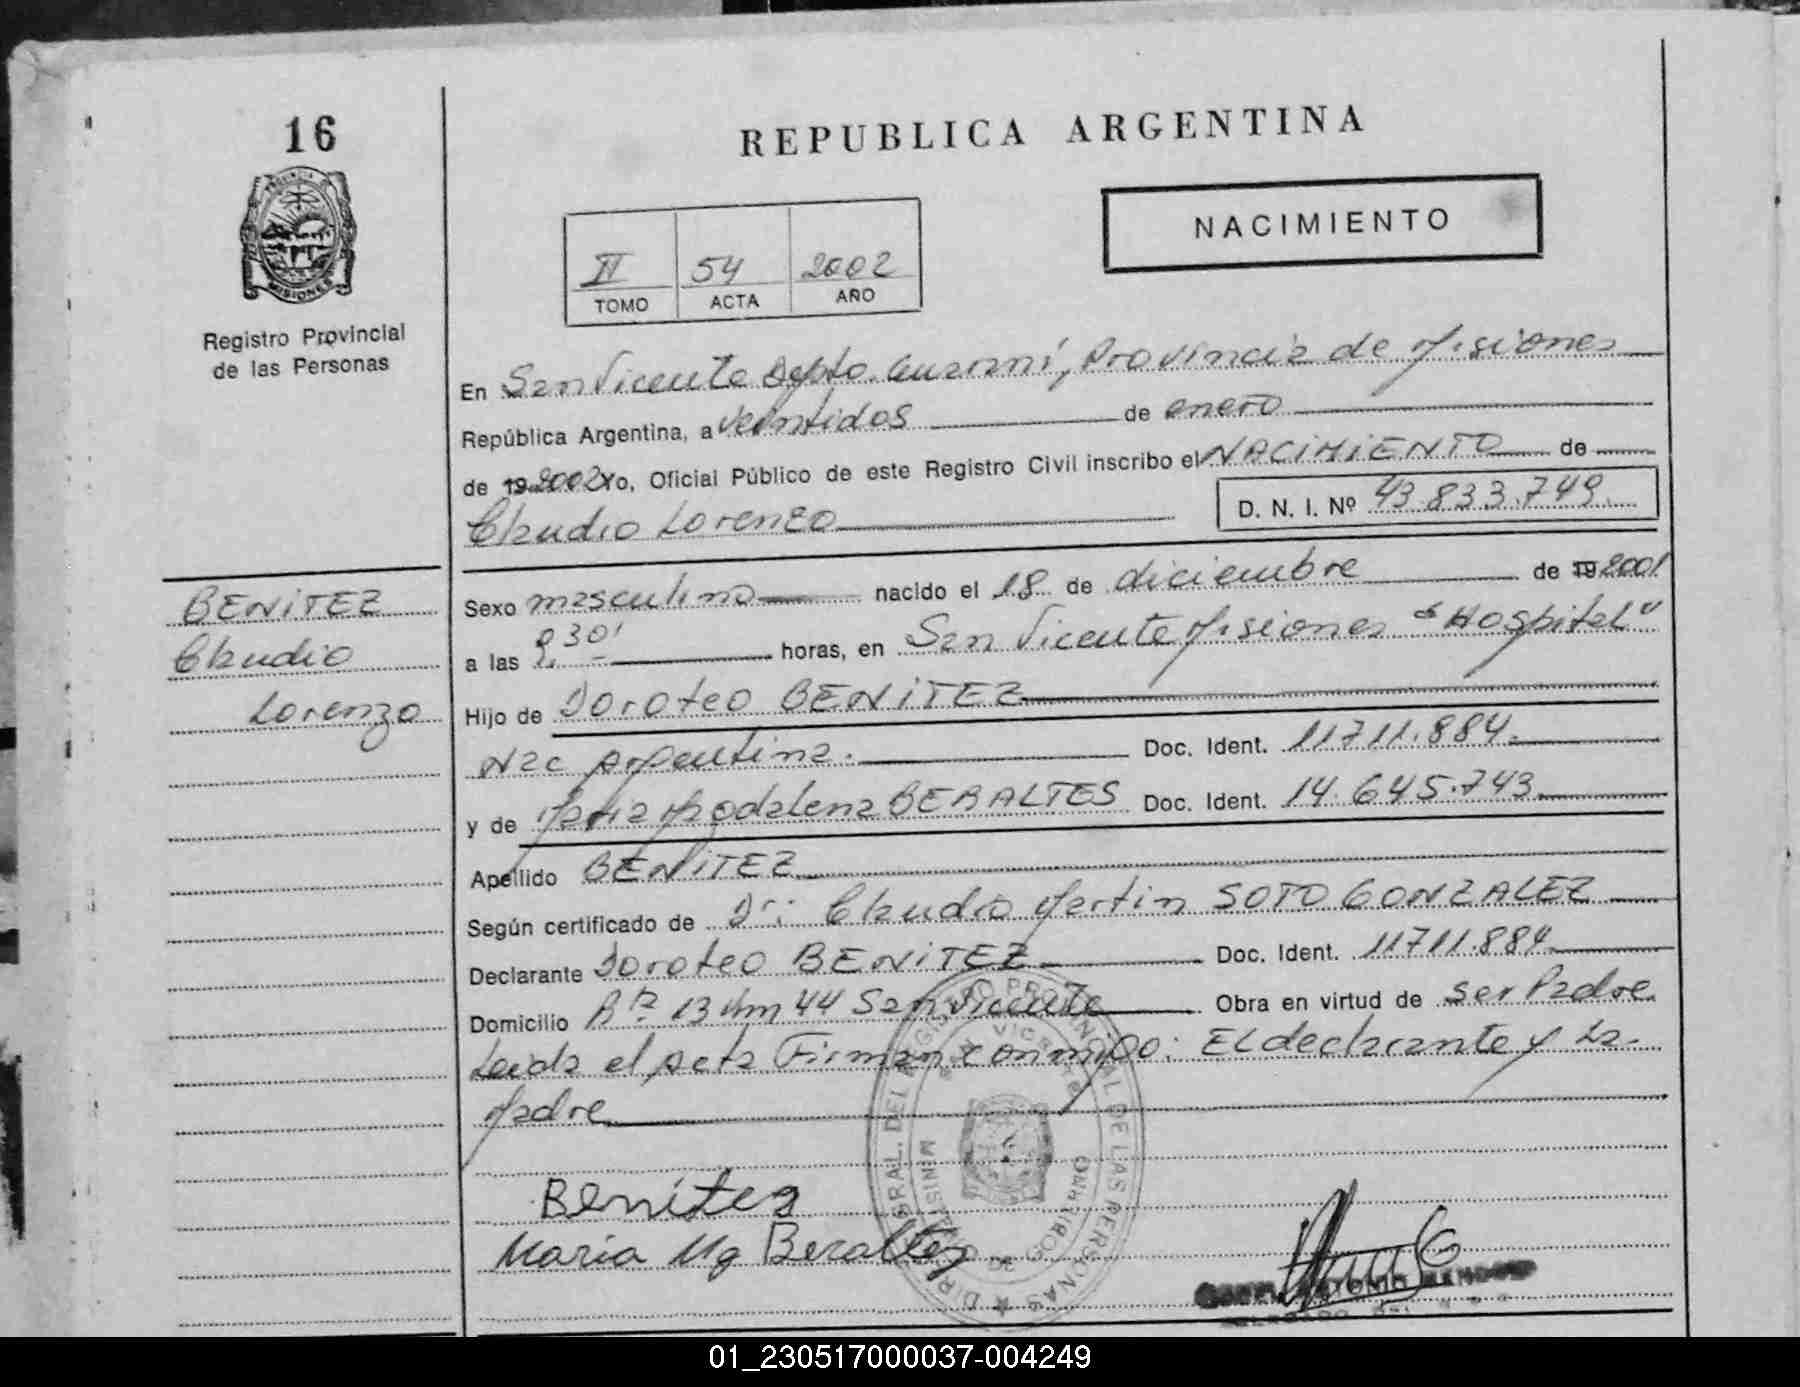 16
REPUBLICA ARGENTINA
PROVINCIA DE
MISIONES
Registro Provincial
de las Personas
NACIMIENTO
II 54 2002
TOMO ACTA AÑO
En San Vicente Depto. Guarani, Provincia de Misiones
República Argentina, a veintidos de enero
de 19 2002 Yo, Oficial Público de este Registro Civil inscribo el NACIMIENTO de
Claudio Lorenzo D. N. I. Nº 43.833.749.
BENITEZ
Claudio
Lorenzo
Sexo masculino nacido el 18 de diciembre de 19 2001
a las 8,30' horas, en San Vicente Misiones "Hospital"
Hijo de Doroteo BENITEZ
Nac Argentina. Doc. Ident. 11.711.884.
y de Maria Magdalena BERALTES Doc. Ident. 14.645.743
Apellido BENITEZ
Según certificado de Dr: Claudio Martin SOTO GONZALEZ
Declarante Doroteo BENITEZ Doc. Ident. 11711.884
Domicilio Rta 13 Km 44 San Vicente Obra en virtud de ser Padre
Leida el Acta Firman conmigo: El declarante y La
Madre
DIR. GRAL. DEL REGISTRO PROVINCIAL DE LAS PERSONAS
VICENTE
MINIST. DE GOBIERNO
Benitez
Maria Mg Beraltez
ANTONIO
01_230517000037-004249